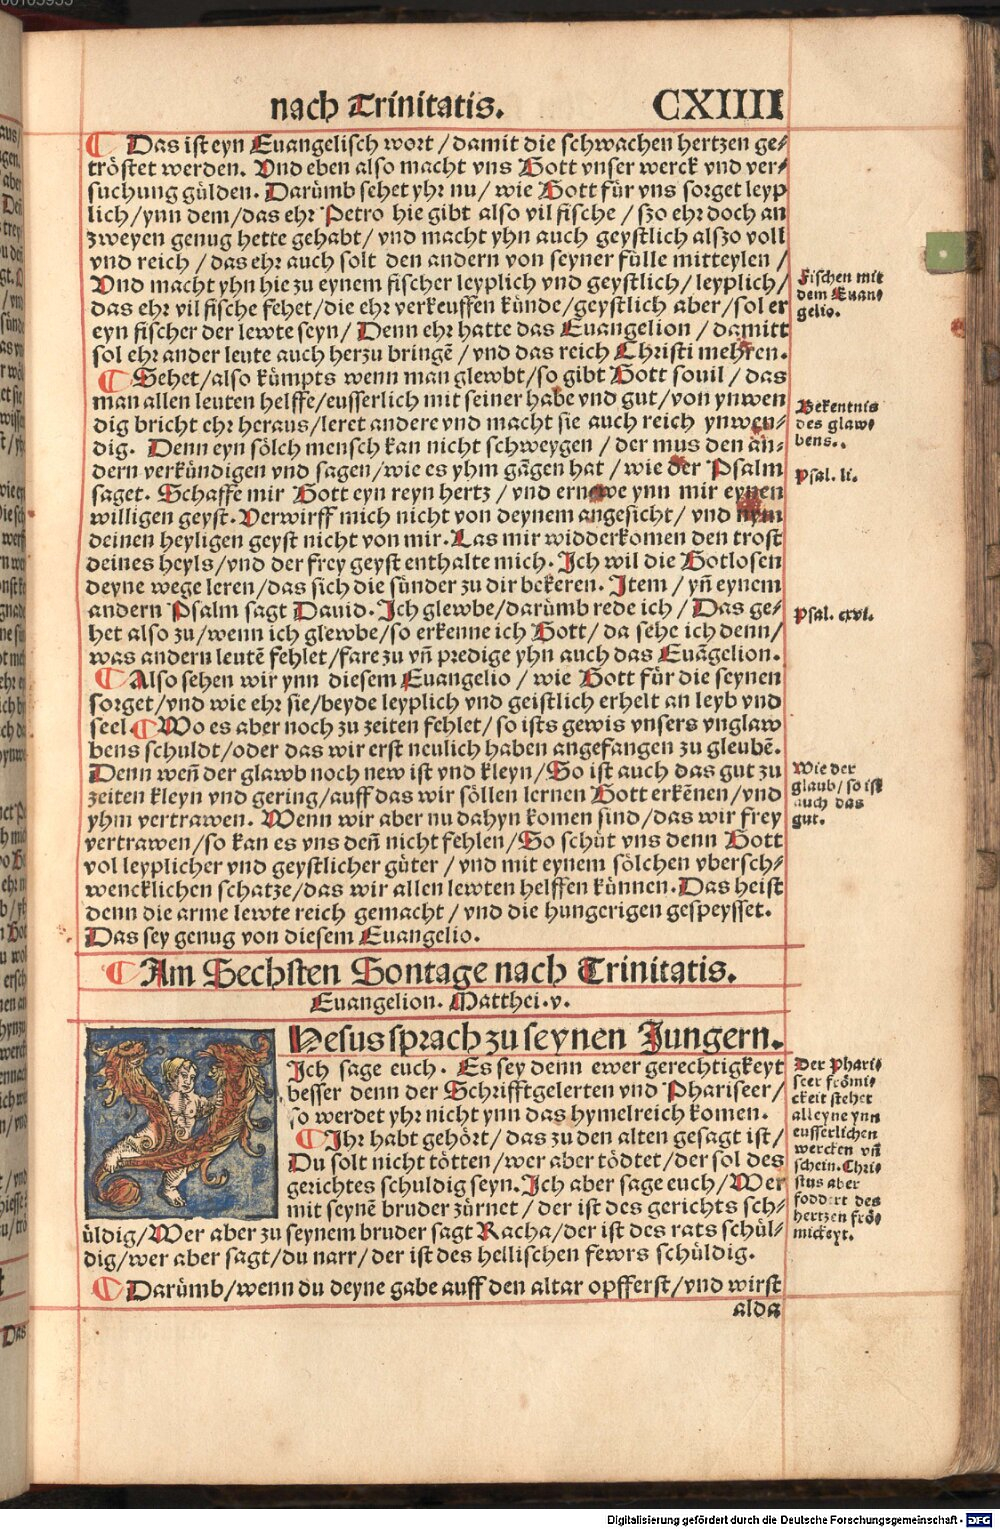 nach Trinitatis. CXIIII
¶ Das ist eyn Euangelisch wort / damit die schwachen hertzen ge-
tröstet werden. Vnd eben also macht vns Gott vnser werck vnd ver-
suchung gülden. Darümb sehet yhr nu / wie Gott für vns sorget leyp
lich / ynn dem / das ehr Petro hie gibt also vil fische / szo ehr doch an
zweyen genug hette gehabt / vnd macht yhn auch geystlich alszo voll
vnd reich / das ehr auch solt den andern von seyner fülle mitteylen /
Vnd macht yhn hie zu eynem fischer leyplich vnd geystlich / leyplich /
das ehr vil fische fehet / die ehr verkeuffen künde / geystlich aber / sol er
eyn fischer der lewte seyn / Denn ehr hatte das Euangelion / damitt
sol ehr ander leute auch herzu bringē / vnd das reich Christi mehren.
Fischen mit
dem Euan-
gelio.
¶ Sehet / also kümpts wenn man glewbt / so gibt Gott souil / das
man allen leuten helffe / eusserlich mit seiner habe vnd gut / von ynwen
dig bricht ehr heraus / leret andere vnd macht sie auch reich ynwen-
dig. Denn eyn sölch mensch kan nicht schweygen / der mus den an-
dern verkündigen vnd sagen / wie es yhm gāgen hat / wie der Psalm
saget. Schaffe mir Gott eyn reyn hertz / vnd ernewe ynn mir eynen
willigen geyst. Verwirff mich nicht von deynem angesicht / vnd nym
deinen heyligen geyst nicht von mir. Las mir widderkomen den trost
deines heyls / vnd der frey geyst enthalte mich. Ich wil die Gotlosen
deyne wege leren / das sich die sünder zu dir bekeren. Item / yn̄ eynem
andern Psalm sagt Dauid. Ich glewbe / darümb rede ich / Das ge-
het also zu / wenn ich glewbe / so erkenne ich Gott / da sehe ich denn /
was andern leutē fehlet / fare zu vn̄ predige yhn auch das Euāgelion.
Bekentnis
des glaw-
bens..
Psal. li.
Psal. cxvi.
¶ Also sehen wir ynn diesem Euangelio / wie Gott für die seynen
sorget / vnd wie ehr sie / beyde leyplich vnd geistlich erhelt an leyb vnd
seel. ¶ Wo es aber noch zu zeiten fehlet / so ists gewis vnsers vnglaw
bens schuldt / oder das wir erst neulich haben angefangen zu gleubē.
Denn wen̄ der glawb noch new ist vnd kleyn / So ist auch das gut zu
zeiten kleyn vnd gering / auff das wir söllen lernen Gott erkēnen / vnd
yhm vertrawen. Wenn wir aber nu dahyn komen sind / das wir frey
vertrawen / so kan es vns den̄ nicht fehlen / So schüt vns denn Gott
vol leyplicher vnd geystlicher güter / vnd mit eynem sölchen vbersch-
wencklichen schatze / das wir allen lewten helffen künnen. Das heist
denn die arme lewte reich gemacht / vnd die hungerigen gespeysset.
Das sey genug von diesem Euangelio.
Wie der
glaub / so ist
auch das
gut.
¶ Am Sechsten Sontage nach Trinitatis.
Euangelion. Matthei. v.
YHesus sprach zu seynen Jungern.
Ich sage euch. Es sey denn ewer gerechtigkeyt
besser denn der Schrifftgelerten vnd Phariseer /
so werdet yhr nicht ynn das hymelreich komen.
¶ Ihr habt gehört / das zu den alten gesagt ist /
Du solt nicht tötten / wer aber tödtet / der sol des
gerichtes schuldig seyn. Ich aber sage euch / Wer
mit seynē bruder zürnet / der ist des gerichts sch-
üldig / Wer aber zu seynem bruder sagt Racha / der ist des rats schül-
dig / wer aber sagt / du narr / der ist des hellischen fewrs schüldig.
¶ Darümb / wenn du deyne gabe auff den altar opfferst / vnd wirst
alda
Der Phari-
seer frömi-
ckeit stehet
alleyne ynn
eusserlichen
wercken vn̄
schein. Chri-
stus aber
foddert des
hertzen frö-
mickeyt.
Digitalisierung gefördert durch die Deutsche Forschungsgemeinschaft - DFG